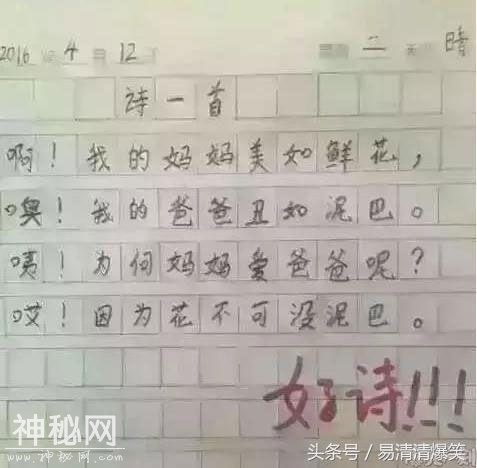 2016 年 4 月 12 日 星期 二 天气 晴
诗一首
啊！我的妈妈美如鲜花，
噢！我的爸爸丑如泥巴。
咦！为何妈妈爱爸爸呢？
哎！因为花不可没泥巴。
好诗!!!
神秘网
www.shenmiw.com
头条号 / 易清清爆笑